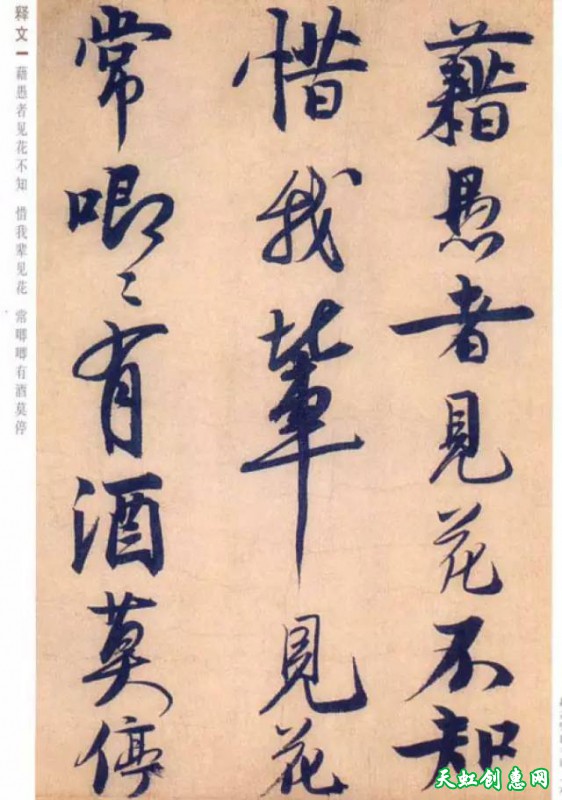 藉愚者見花不知
惜我輩見花
常唧〻有酒莫停
释文
藉愚者见花不知 惜我辈见花 常唧唧有酒莫停
天虹创惠网